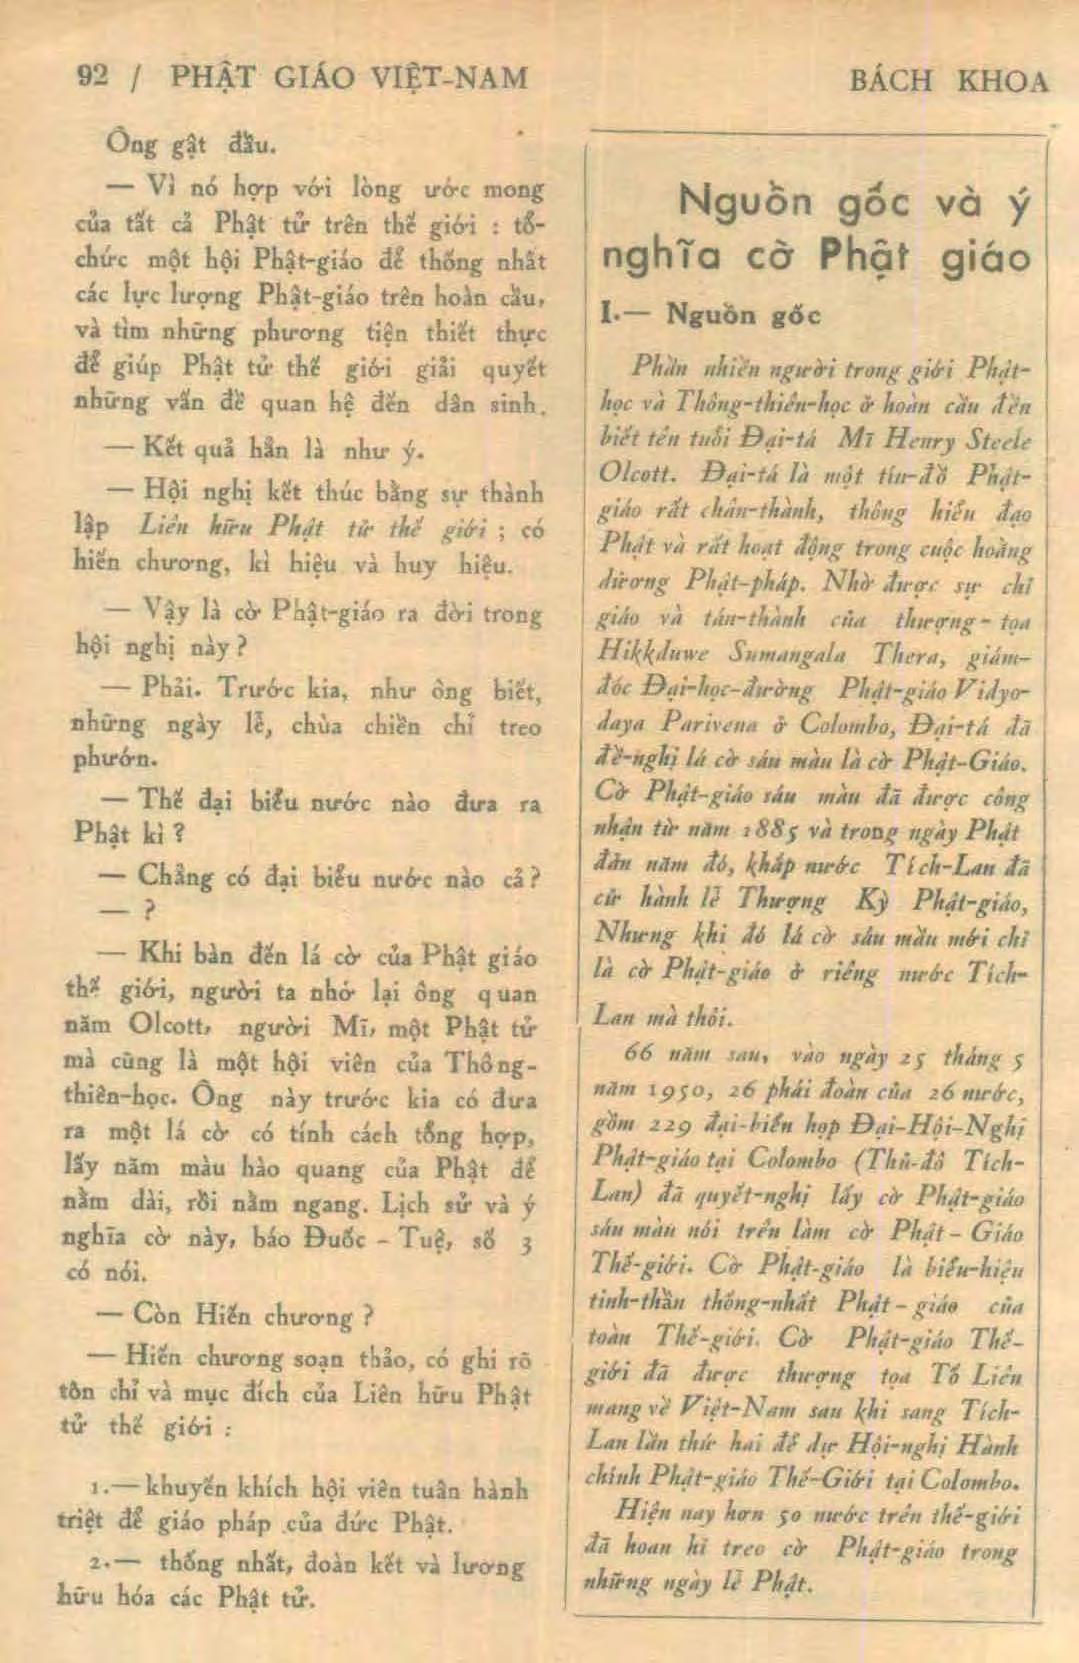 92 / PHẬT GIÁO VIỆT-NAM
BÁCH KHOA
Ông gật đầu.
— Vì nó hợp với lòng ước mong
của tất cả Phật tử trên thế giới : tổ-
chức một hội Phật-giáo để thống nhất
các lực lượng Phật-giáo trên hoàn cầu,
và tìm những phương tiện thiết thực
để giúp Phật tử thế giới giải quyết
những vấn đề quan hệ đến dân sinh.
— Kết quả hẳn là như ý.
— Hội nghị kết thúc bằng sự thành
lập Liên hữu Phật tử thế giới ; có
hiến chương, kì hiệu và huy hiệu.
— Vậy là cờ Phật-giáo ra đời trong
hội nghị này ?
— Phải. Trước kia, như ông biết,
những ngày lễ, chùa chiền chỉ treo
phướn.
— Thế đại biểu nước nào đưa ra
Phật kì ?
— Chẳng có đại biểu nước nào cả ?
— ?
— Khi bàn đến lá cờ của Phật giáo
thế giới, người ta nhớ lại ông quan
năm Olcott, người Mĩ, một Phật tử
mà cũng là một hội viên của Thông-
thiên-học. Ông này trước kia có đưa
ra một lá cờ có tính cách tổng hợp,
lấy năm màu hào quang của Phật để
nằm dài, rồi nằm ngang. Lịch sử và ý
nghĩa cờ này, báo Đuốc - Tuệ, số 3
có nói.
— Còn Hiến chương ?
— Hiến chương soạn thảo, có ghi rõ
tôn chỉ và mục đích của Liên hữu Phật
tử thế giới :
1.— khuyến khích hội viên tuân hành
triệt để giáo pháp của đức Phật.
2.— thống nhất, đoàn kết và lương
hữu hóa các Phật tử.
Nguồn gốc và ý
nghĩa cờ Phật giáo
I.— Nguồn gốc
Phần nhiều người trong giới Phật-
học và Thông-thiên-học ở hoàn cầu đến
biết tên tuổi Đại-tá Mĩ Henry Steele
Olcott. Đại-tá là một tín-đồ Phật-
giáo rất chân-thành, thông hiểu đạo
Phật và rất hoạt động trong cuộc hoằng
dương Phật-pháp. Nhờ được sự chỉ
giáo và tán-thành của thượng - tọa
Hikkduwe Sumangala Thera, giám-
đốc Đại-học-đường Phật-giáo Vidyo-
daya Parivena ở Colombo, Đại-tá đã
đề-nghị lá cờ sáu màu là cờ Phật-Giáo.
Cờ Phật-giáo sáu màu đã được công
nhận từ năm 1885 và trong ngày Phật
đản năm đó, khắp nước Tích-Lan đã
cử hành lễ Thượng Kỳ Phật-giáo,
Nhưng khi đó lá cờ sáu mầu mới chỉ
là cờ Phật-giáo ở riêng nước Tích-
Lan mà thôi.
66 năm sau, vào ngày 25 tháng 5
năm 1950, 26 phái đoàn của 26 nước,
gồm 229 đại-biểu họp Đại-Hội-Nghị
Phật-giáo tại Colombo (Thủ-đô Tích-
Lan) đã quyết-nghị lấy cờ Phật-giáo
sáu màu nói trên làm cờ Phật - Giáo
Thế-giới. Cờ Phật-giáo là biểu-hiệu
tinh-thần thống-nhất Phật - giáo của
toàn Thế-giới. Cờ Phật-giáo Thế-
giới đã được thượng tọa Tố Liên
mang về Việt-Nam sau khi sang Tích-
Lan lần thứ hai để dự Hội-nghị Hành
chính Phật-giáo Thế-Giới tại Colombo.
Hiện nay hơn 50 nước trên thế-giới
đã hoan hỉ treo cờ Phật-giáo trong
những ngày lễ Phật.